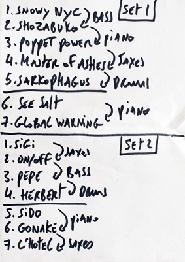 1. SNOWY NYC BASS SET 1
2. SHOZABUKO
3. POPPET POWER PIANO
4. MASTER OF ASHES SAXES
5. SARKOPHAGUS DRUMS
6. SEE SALT
7. GLOBAL WARMING PIANO
1. SIGI SET 2
2. ON/OFF SAXES
3. PEPE BASS
4. HERBERT DRUMS
5. SIDO
6. GONAKE PIANO
7. L'HOTEL SAXES